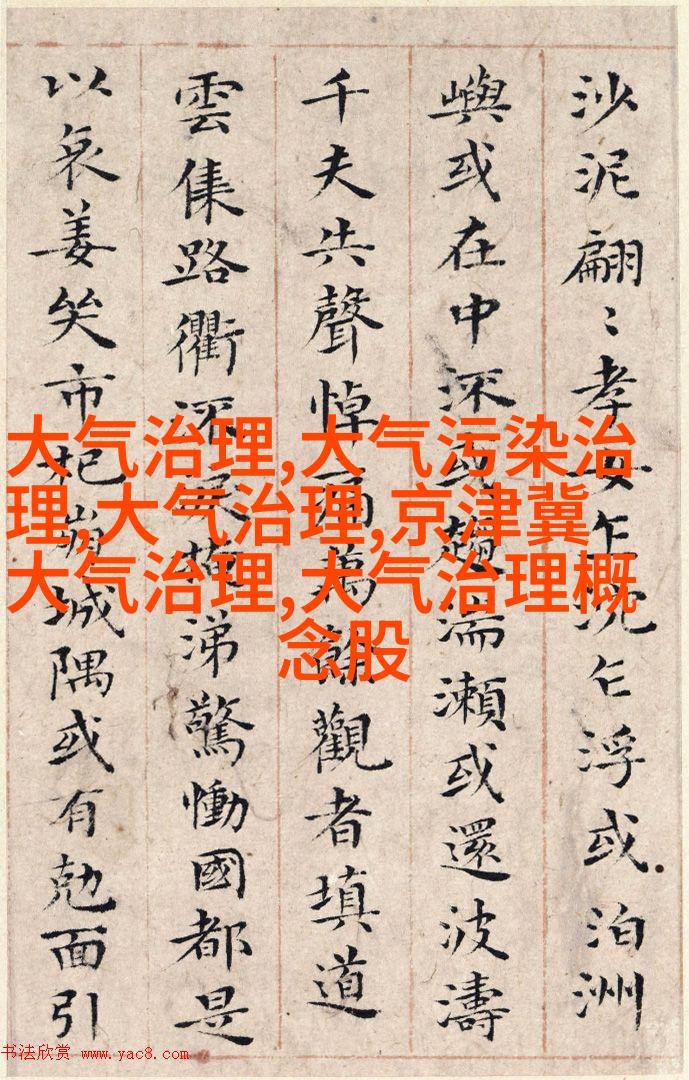 沙泥翩〻孝女乍沈乍浮或泊洲
嶼或在中深或趨湍瀨或還波濤
千夫共聲悼痛萬餘觀者填道
雲集路衢掩涕驚慟國都是
以哀姜哭市杞崩城隅或有勊面引
大气治理,大气污染治
理,大气治理,京津冀
大气治理,大气治理概
念股
书法欣赏 www.yac8.com